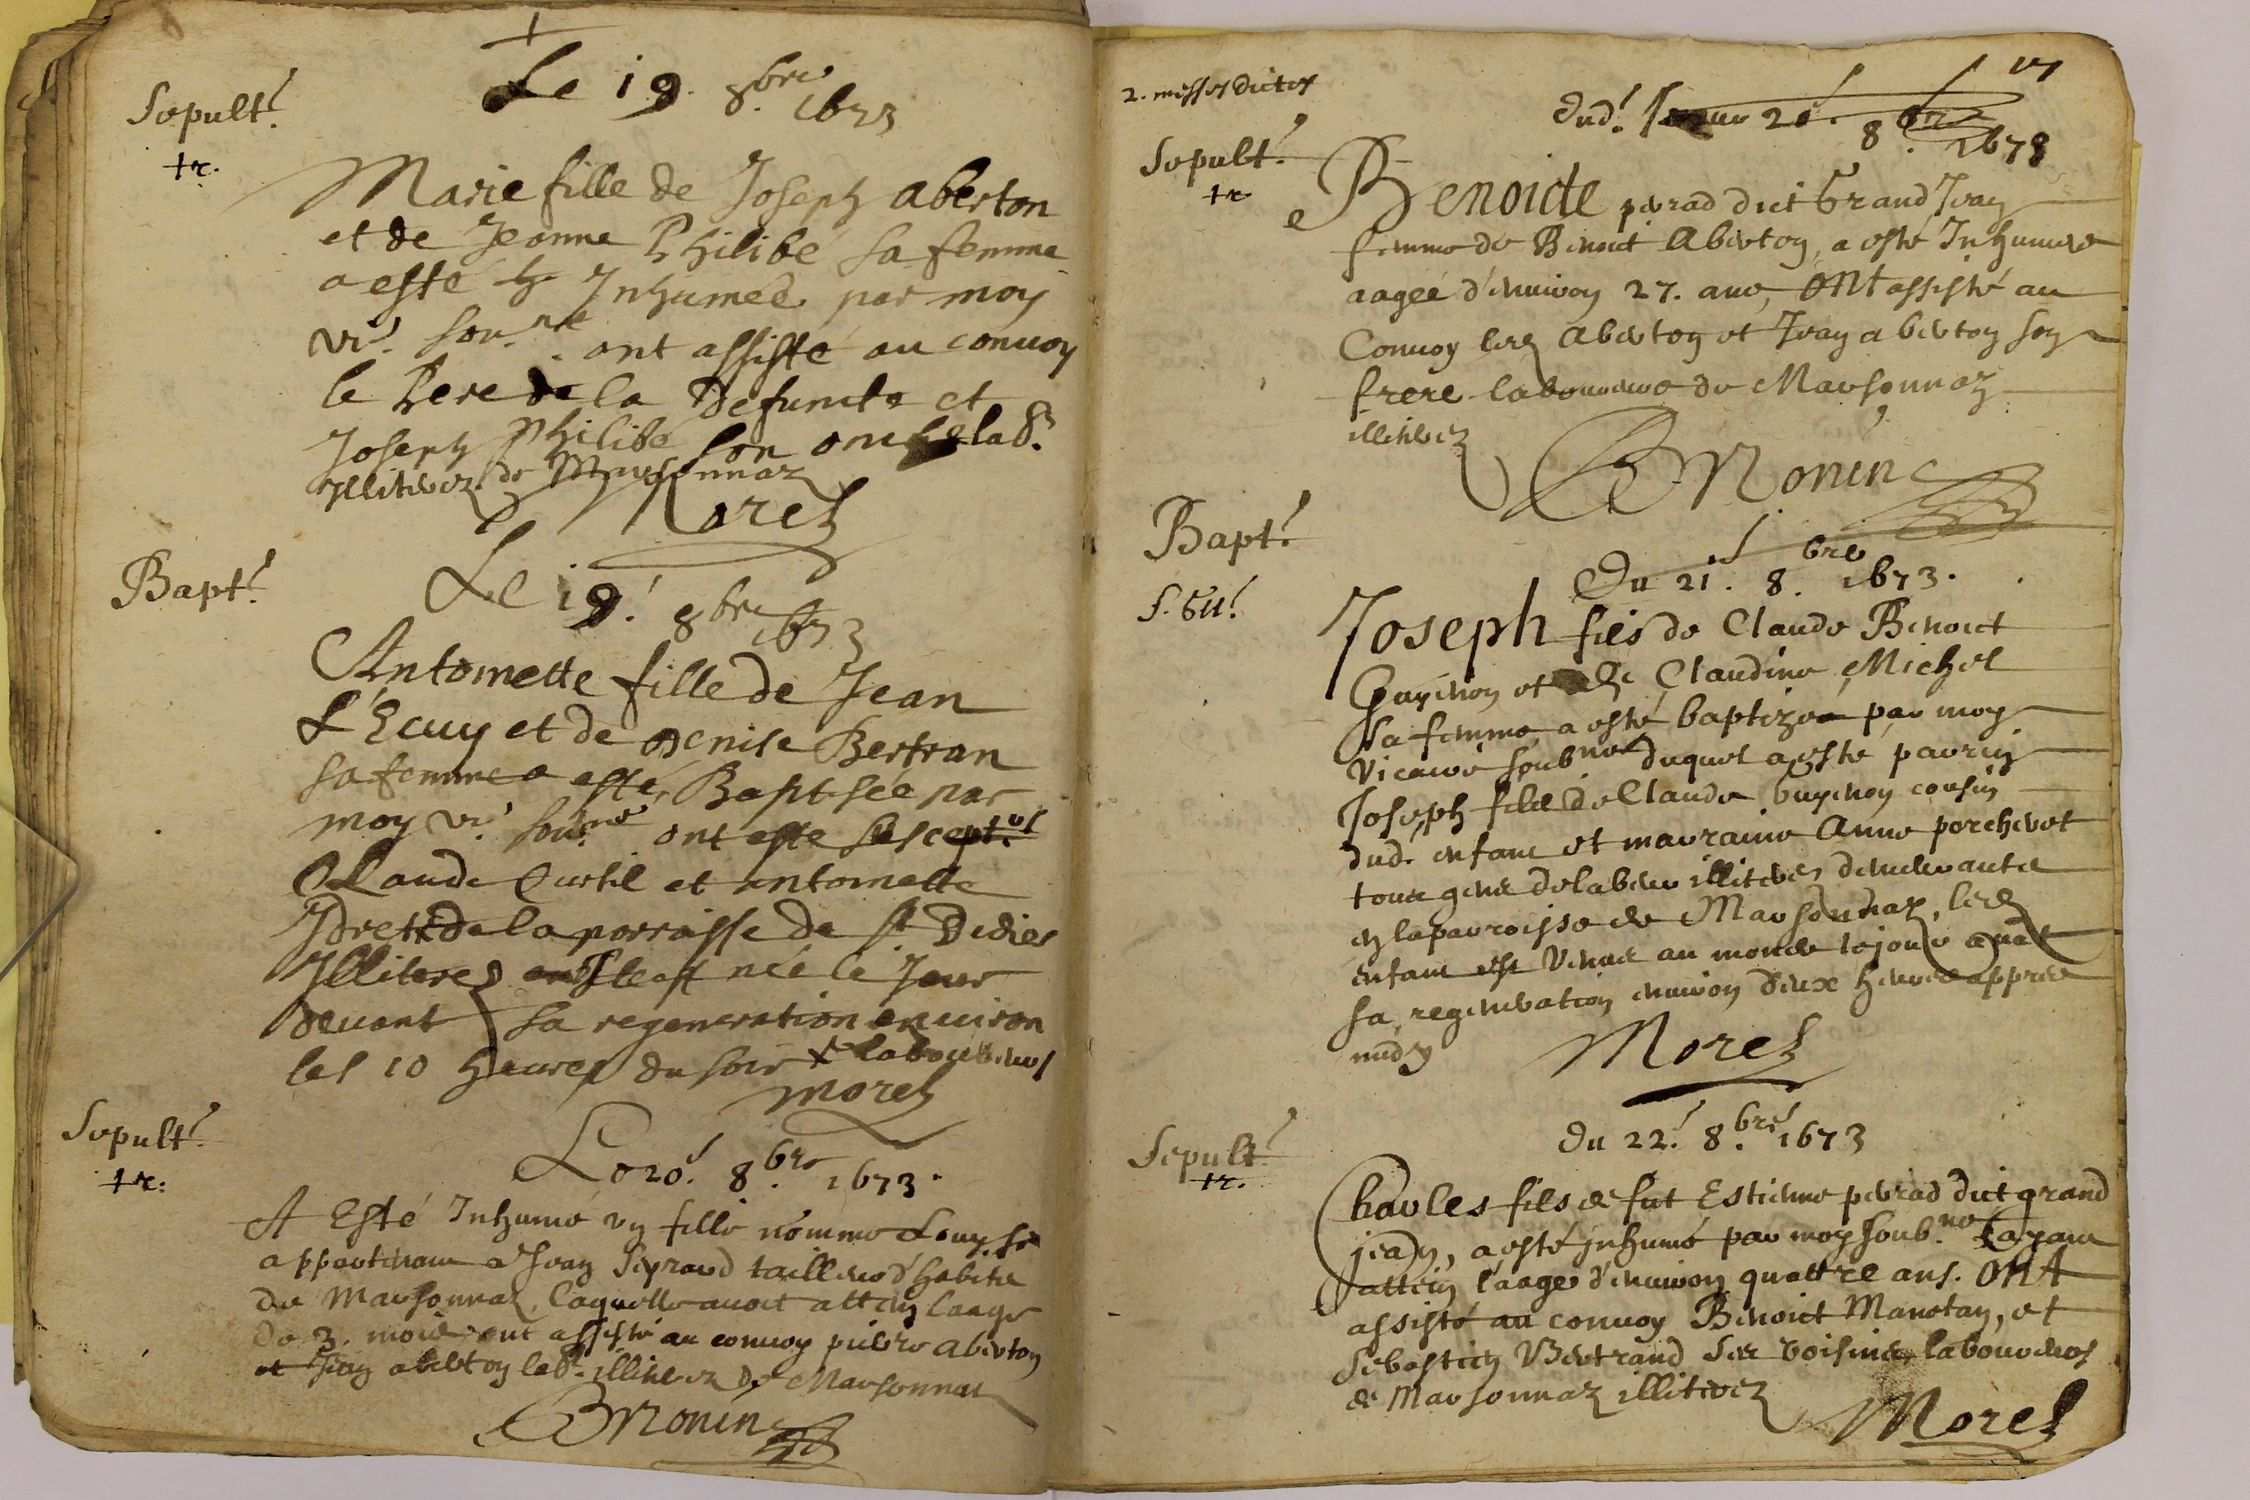 Sepult.
+r.
Le 19. 8.bre 1673
Marie fille de Joseph aberton
et de Jeanne Philibé sa femme
a esté Inhumée par moy
vi. sou.né ont assisté au convoy
le Pere de la Defuncte et
Joseph Philibé son oncle lab.
Illiterez de Marsonnaz
Morel
Bapt.
Le 19. 8bre 1673
Antoinette fille de Jean
L'Ecuy et de Denise Bertran
sa femme a esté Baptisée par
moy vi. sou.né ont esté suscept.
Claude Curtil et antoinette
de la parroisse de St Didier
Illiteres elle est née le Jour
devant sa regeneration environ
les 10 heures du soir + laboureurs
morel
Sepult.
+r.
Le 20. 8.bre 1673.
A Esté Inhumé un fille nommé Louyse
appartenant a Jean taillieur d'habits
de Marsonnaz, laquelle avoit attein laage
de 3. mois ont assisté au convoy pierre aberton
et Jean aberton lab. illiterez de Marsonnaz
BMonin
17
2. messes dictes
Sepult.
+r
Dud. Jour 20. 8.bre 1673
Benoicte perad dict Grand Jean
femme de Benoict Aberton, a esté Inhumee
aagée d'environ 27. ans, ONt assisté au
Convoy led aberton et Jean aberton son
frere laboureurs de Marsonnaz
illiterez
BMonin
Bapt.
Du 21. 8.bre 1673.
Joseph fils de Claude Benoict
Guyenon et de Claudine Michel
sa femme a esté baptizé par moy
vicaire soubné duquel a esté parrin
Joseph fils de Claude Guyenon cousin
dud. enfant et marraine Anne porcheret
tous gens de labeur illiteres demeurants
en la parroisse de Marsonnaz, led
enfant est venu au monde le jour avant
sa regeneration environ deux heures appres
midy
Morel
Sepult.
+r.
Du 22. 8.bre 1673
Charles fils de fut Estienne perrad dict grand
jean, a esté inhumé par moy soub.né ayant
attein l'aage d'environ quattre ans. ONt
assisté au convoy Benoict Manotan, et
Sebastien Bertrand ses voisins laboureurs
de Marsonnaz illiterez
Morel